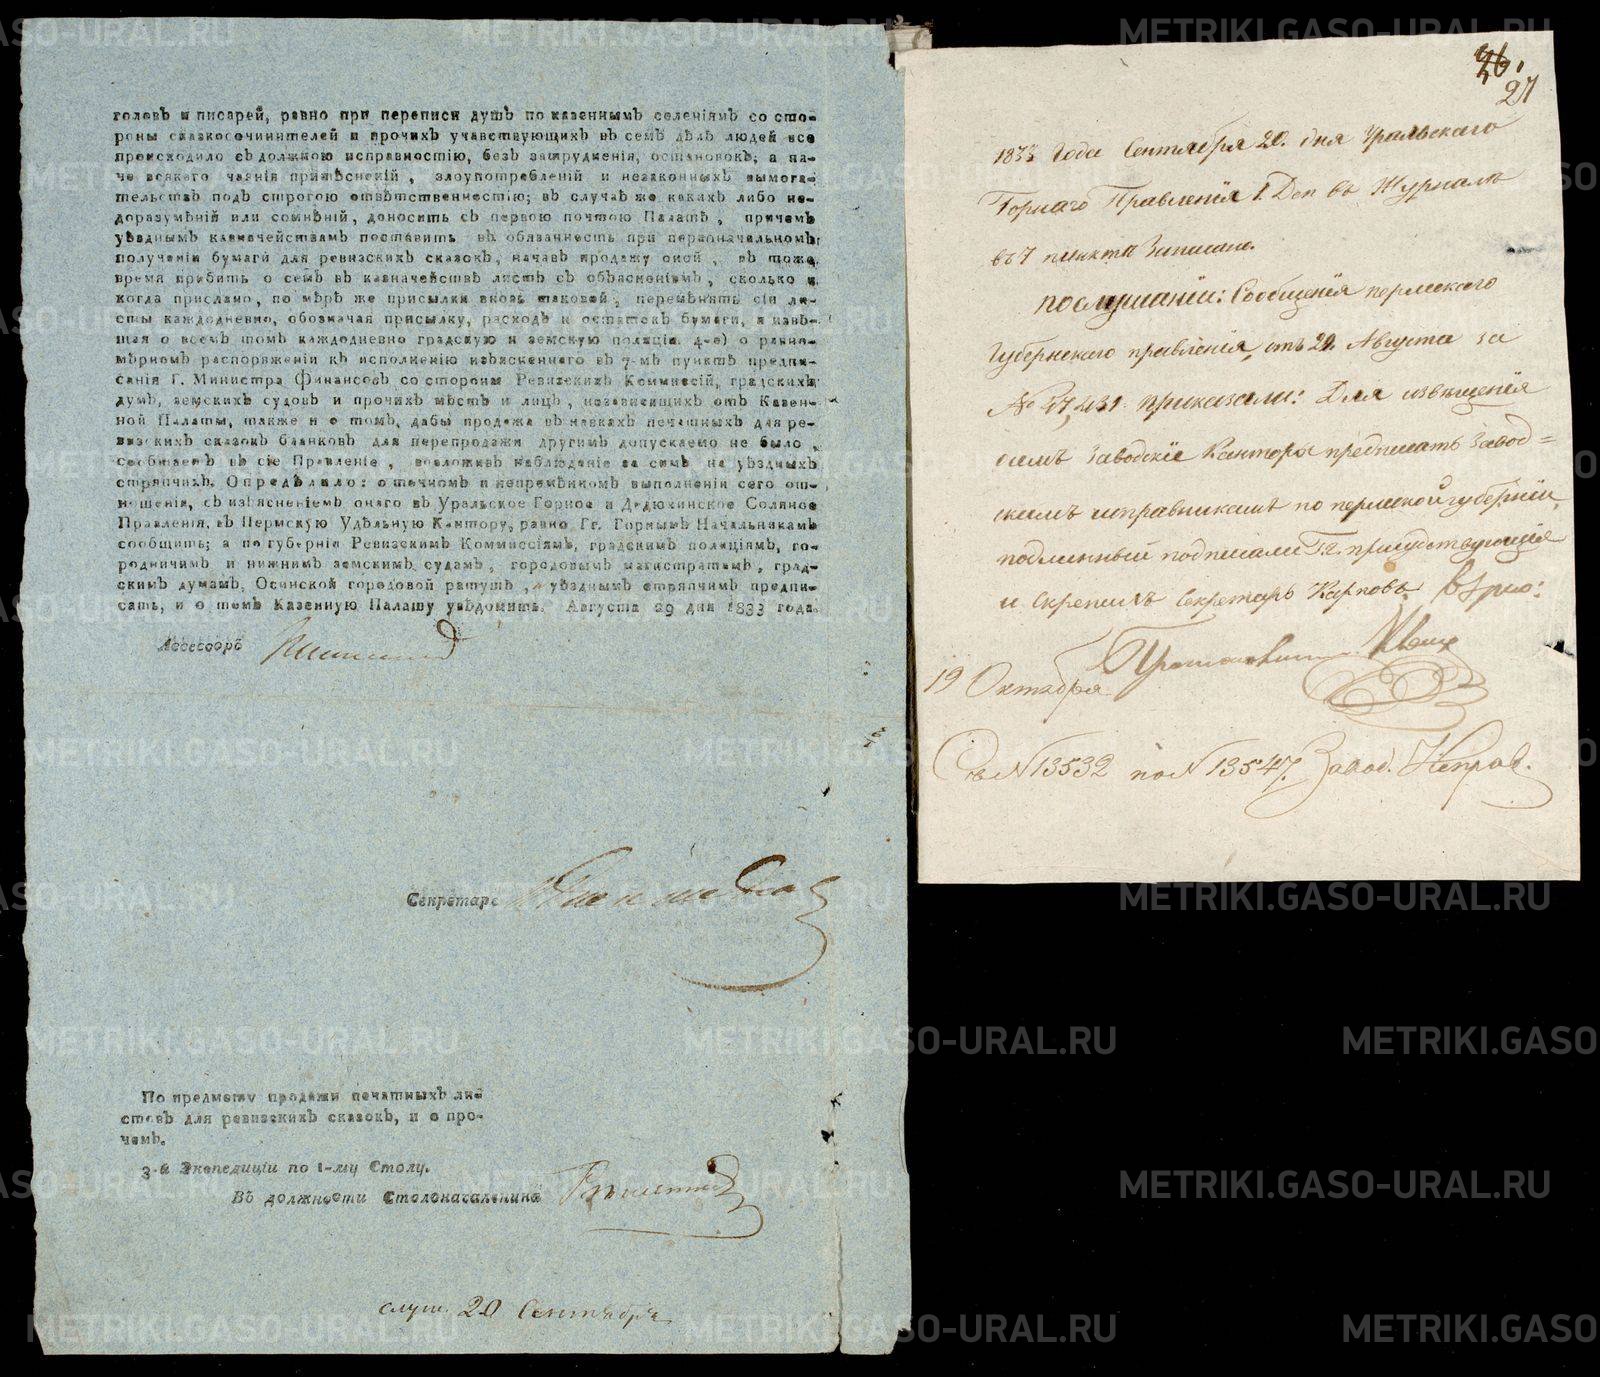 головъ и писарей, равно при переписи душъ по казеннымъ селеніямъ со сто-
роны сказкосочинителей и прочихъ участвующихъ въ семъ дѣлѣ людей все
происходило съ должною исправностію, безъ затрудненія, остановокъ; а па-
че всякаго чаянія притѣсненій, злоупотребленій и незаконныхъ вымога-
тельствъ подъ строгою отвѣтственностію; въ случаѣ же какихъ либо не-
доразумѣній или сомнѣній, доносить съ первою почтою Палатѣ, причемъ
уѣзднымъ казначействамъ поставить въ обязанность при первоначальномъ
полученіи бумаги для ревизскихъ сказокъ, начавъ продажу оной, въ тоже
время прибить о семъ въ казначействѣ листъ съ объясненіемъ, сколько и
когда прислано, по мѣрѣ же присылки вновь таковой, перемѣнять сіи ли-
сты каждодневно, обозначая присылку, расходъ и остатокъ бумаги, и извѣ-
щая о всемъ томъ каждодневно градскую и земскую полиціи. 4-е) о равно-
мѣрномъ распоряженіи къ исполненію изъясненнаго въ 7-мъ пунктѣ предпи-
санія Г. Министра Финансовъ со стороны Ревизскихъ Коммиссій, градскихъ
думъ, земскихъ судовъ и прочихъ мѣстъ и лицъ, независящихъ отъ Казен-
ной Палаты, также и о томъ, дабы продажа въ лавкахъ печатныхъ для ре-
визскихъ сказокъ бланковъ для перепродажи другимъ допускаемо не было
сообщаетъ въ сіе Правленіе, возложивъ наблюденіе за симъ на уѣздныхъ
стряпчихъ. Опредѣлило: о точномъ и непремѣнномъ выполненіи сего от-
ношенія, съ изъясненіемъ онаго въ Уральское Горное и Дедюхинское Соляное
Правленія, въ Пермскую Удѣльную Контору, равно Гг. Горнымъ Начальникамъ
сообщить; а по губерніи Ревизскимъ Коммиссіямъ, градскимъ полиціямъ, го-
родничимъ и нижнимъ земскимъ судамъ, городовымъ магистратамъ, град-
скимъ думамъ, Осинской городовой ратушѣ, и уѣзднымъ стряпчимъ предпи-
сать, и о томъ Казенную Палату увѣдомить. Августа 29 дня 1833 года.
Ассессоръ
Секретарь
По предмету продажи печатныхъ ли-
стовъ для ревизскихъ сказокъ, и о про-
чемъ.
3-й Экспедиціи по 1-му Столу.
Въ должности Столоначальника
слуш. 20 Сентября
27
1833 года Сентября 20. дня Уральскаго
Горнаго Правленія 1. Деп въ Журналѣ
въ 7 пунктѣ Записано.
по слушаніи: Сообщенія пермскаго
Губернскаго правленія, отъ 29. Августа за
№ 27,431. приказали: Для извѣщенія
симъ Заводскіе Канторы предписать Завод=
скимъ исправникамъ по пермской губерніи,
подлинный подписали Гг. присутствующіе
и Скрепилъ Секретарь Карповъ.
19 Октября
Съ № 13532 по № 13547. Завод. Исправ.
METRIKI.GASO-URAL.RU